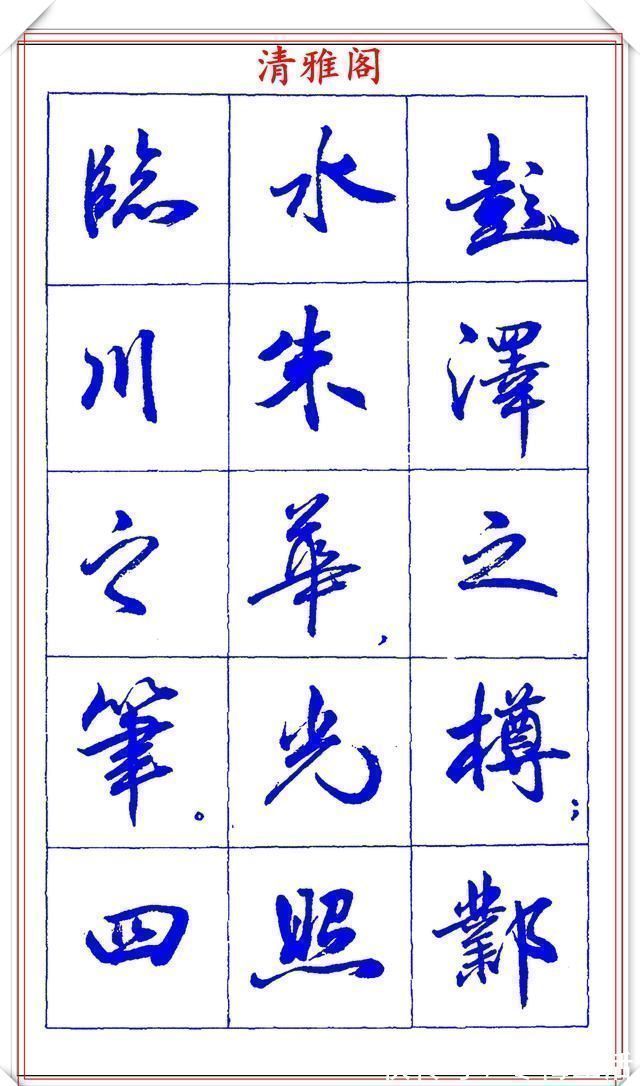 清雅阁
彭澤之樽；鄴
水朱華，光照
臨川之筆。四